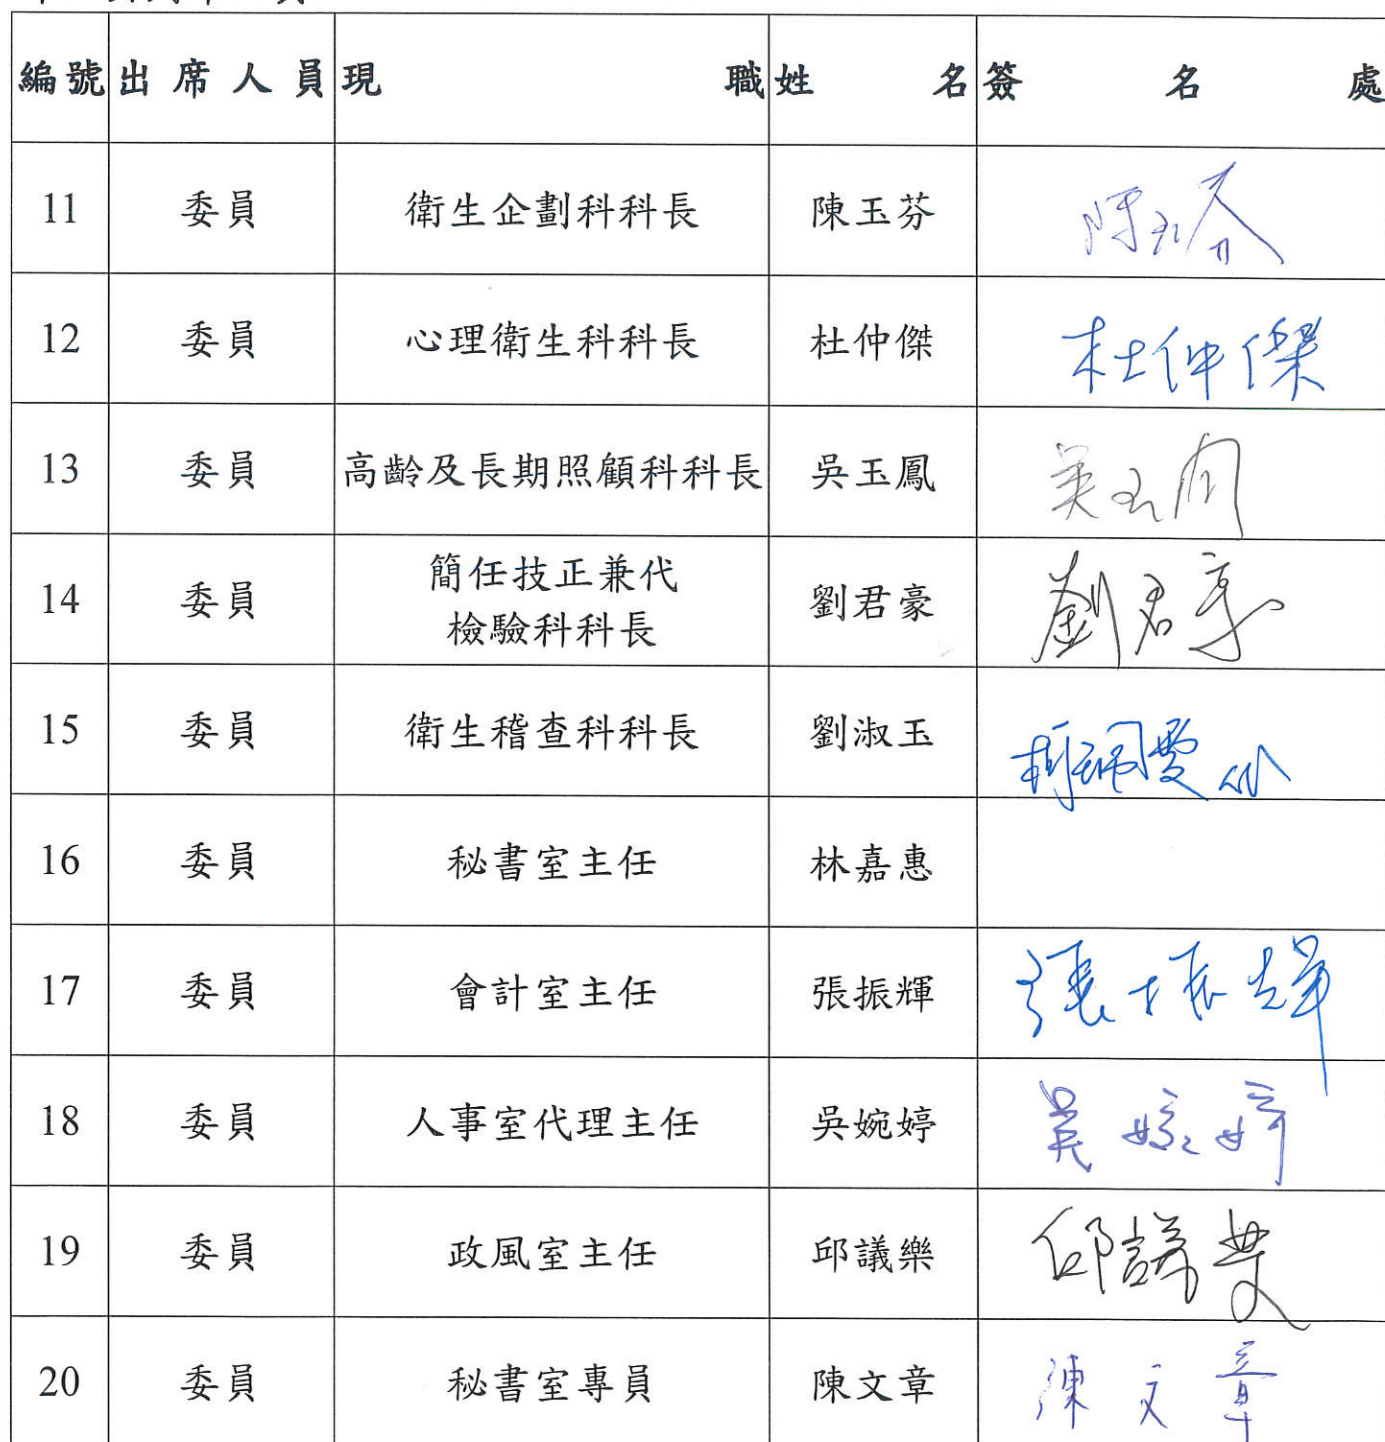 編號 出席人員 現職 姓名 簽名處
11 委員 衛生企劃科科長 陳玉芬 陳玉芬
12 委員 心理衛生科科長 杜仲傑 杜仲傑
13 委員 高齡及長期照顧科科長 吳玉鳳 吳玉鳳
14 委員 簡任技正兼代 劉君豪 劉君豪
檢驗科科長
15 委員 衛生稽查科科長 劉淑玉
16 委員 秘書室主任 林嘉惠
17 委員 會計室主任 張振輝 張振輝
18 委員 人事室代理主任 吳婉婷 吳婉婷
19 委員 政風室主任 邱議樂 邱議樂
20 委員 秘書室專員 陳文章 陳文章